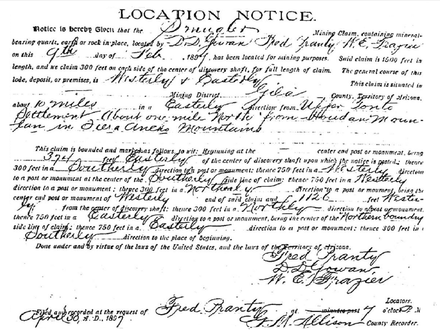 LOCATION NOTICE.
Notice is hereby Given that the Smuggler Mining Claim, containing mineral-
bearing quartz, earth or rock in place, located by D.D. Gowan Fred Pranty W.E. Frazier
on this 9th day of Feb. 1897, has been located for mining purposes. Said claim is 1500 feet in
length, and we claim 300 feet on each side of center of discovery shaft, for full length of claim. The general course of this
lode, deposit, or premises, is Westerly & Easterly This claim is situated in
Mining District, Gila County, Territory of Arizona,
about 10 miles in a Easterly direction from Upper Tonto
Settlement About one mile North from Moun-
tain in Mountains
This claim is bounded and marked as follows, to wit: Beginning at the center end post, or monument, being
feet Easterly of the center of discovery shaft upon which the notice is posted; thence
300 feet in a Southerly direction to a post or monument, thence 750 feet in a Westerly direction
to a post or monument at the center of the Southerly side line of claim; thence 750 feet in a Westerly
direction to a post or monument; thence 300 feet in a Northerly direction to a post or monument, being the
center end post or monument of Westerly end of said claim and 1120 feet Wester-
ly from the center of discovery shaft; thence 300 feet in a Northerly direction to a post or monument,
thence 750 feet in a Easterly direction to a post or monument, being the center of the Northern boundry
side line of claim; thence 750 feet in a Easterly direction to a post or monument; thence 300 feet in a
Southerly direction to the place of beginning.
Done under and by virtue of the laws of the United States, and the laws of the Territory of Arizona.
Fred Pranty
D.D. Gowan
W. E. Frazier
Locators.
Filed and recorded at the request of Fred Pranty at minutes past 9 o'clock
April 30, A. D., 1897 Allison County Recorder.